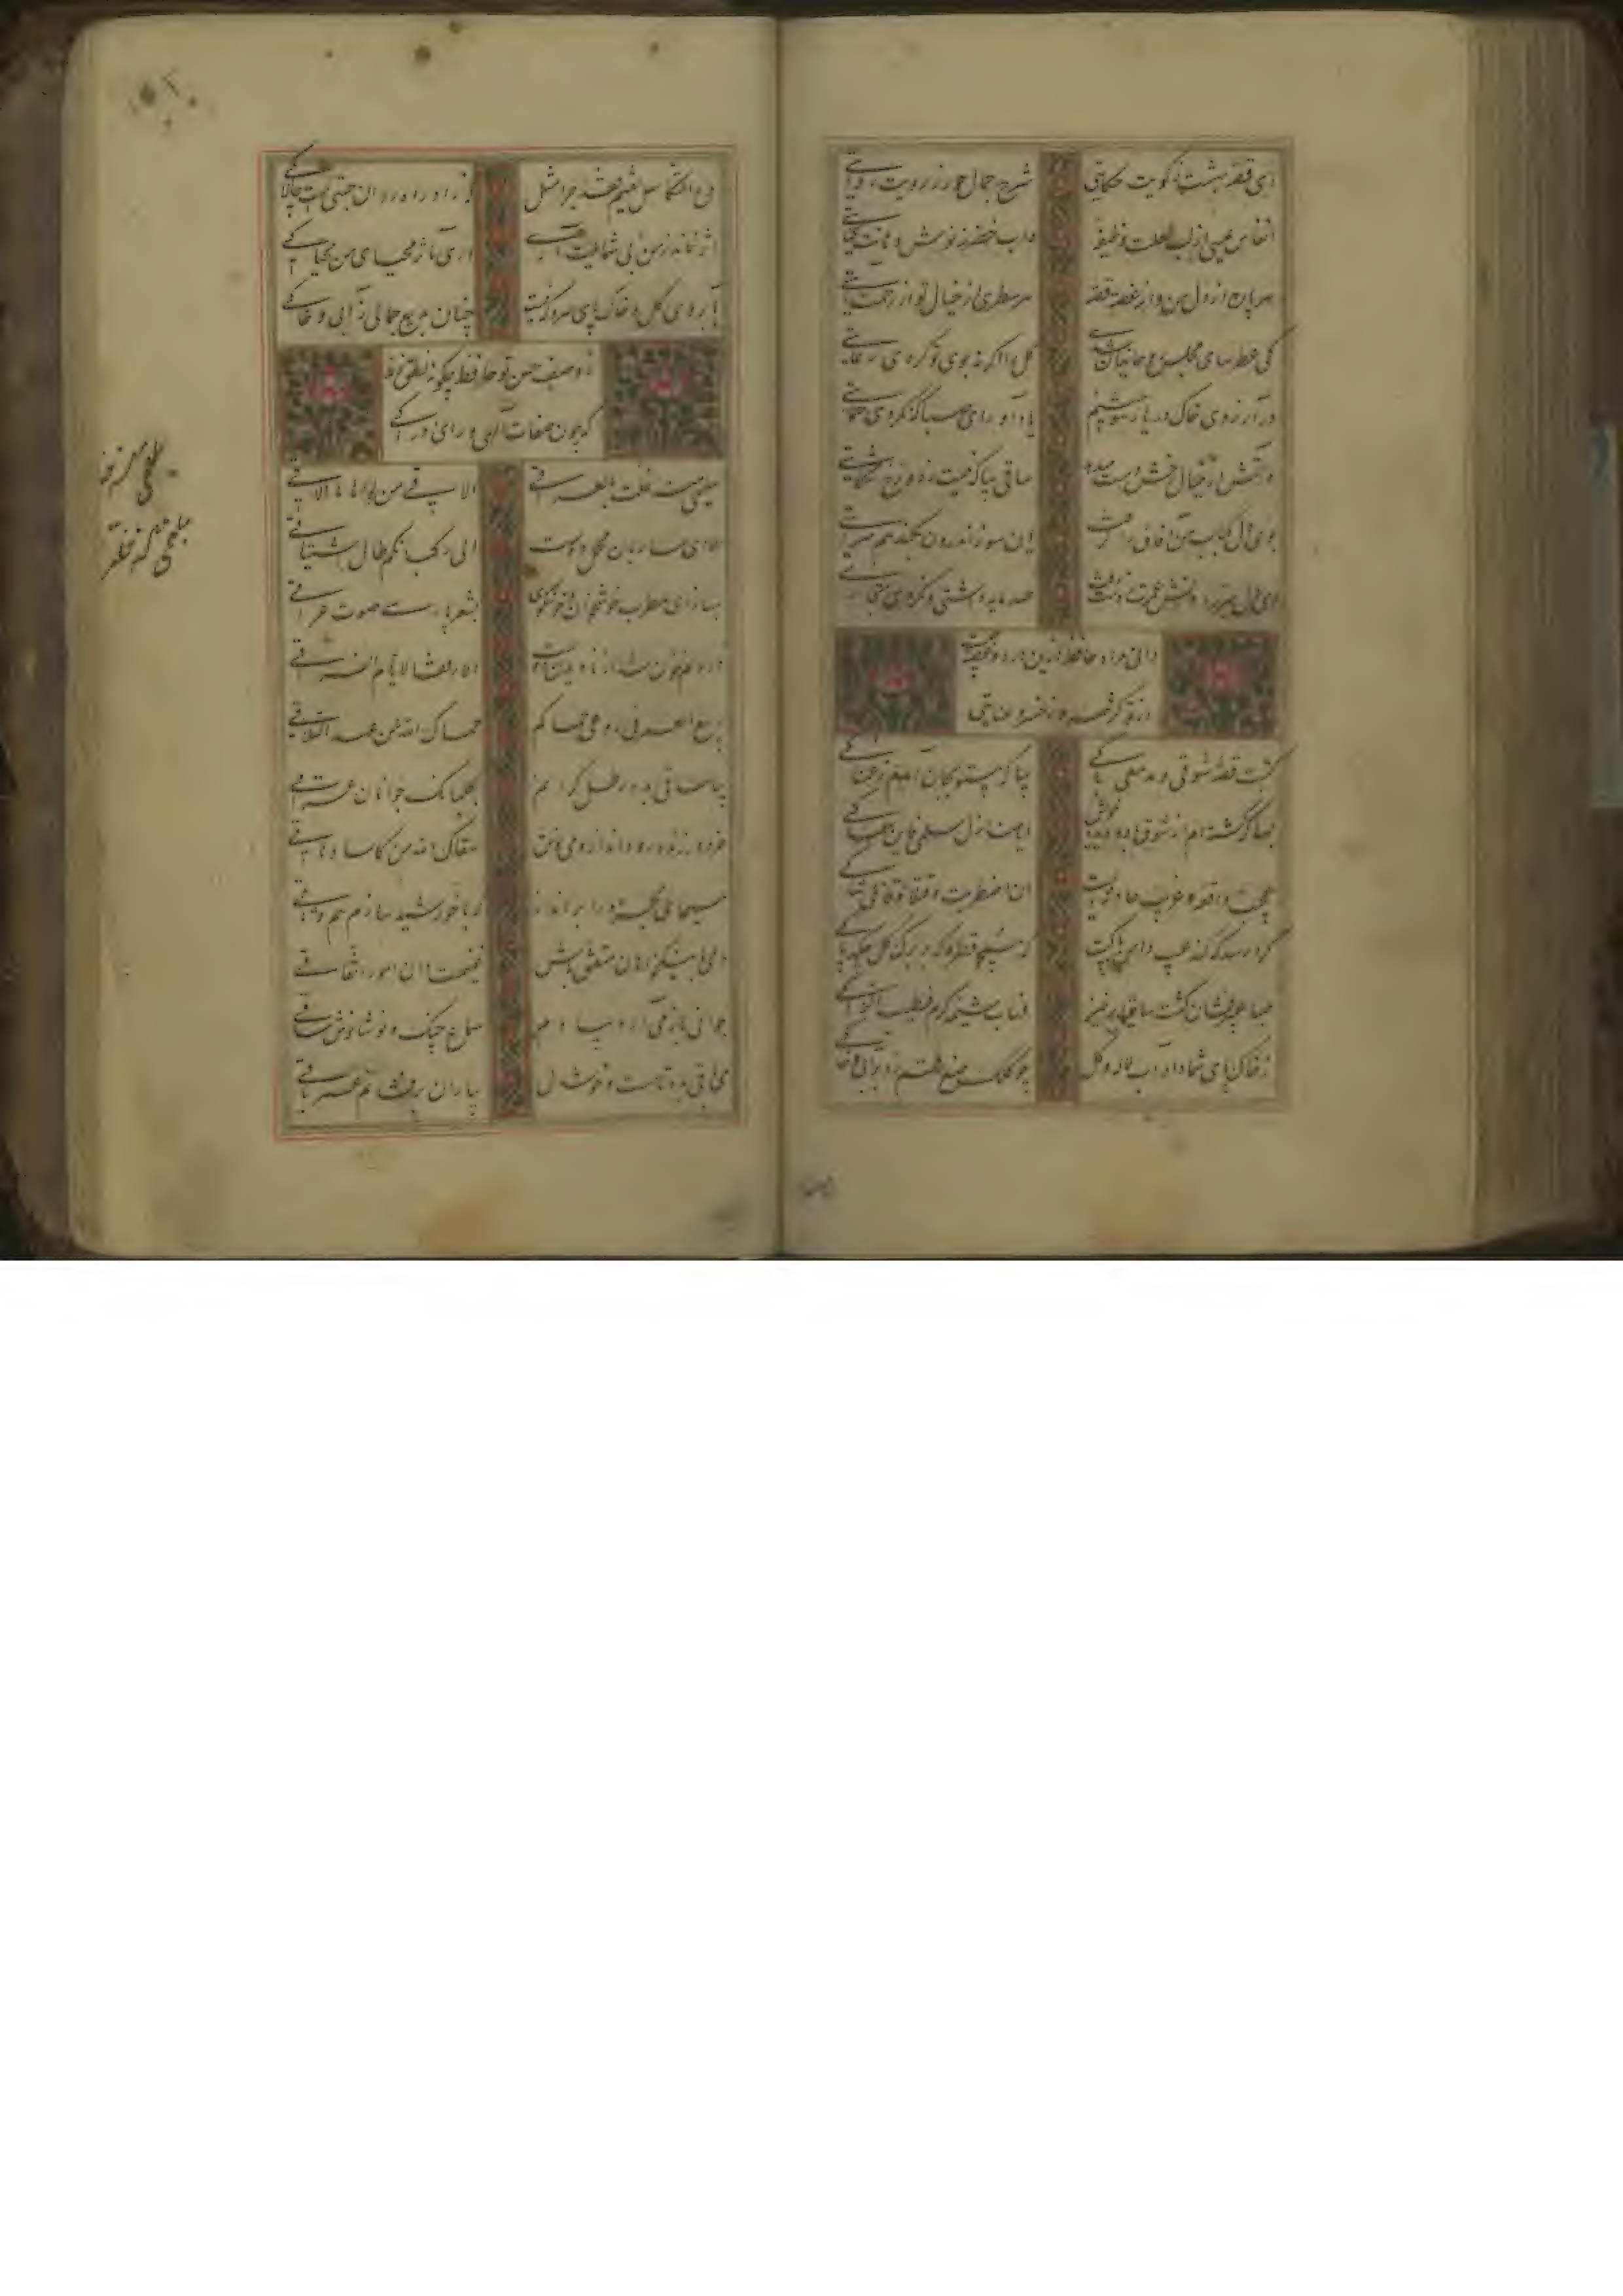 ای قصه بهشت ز کویت حکایتی
شرح جمال حور ز رویت روایتی
انفاس عیسی از لب لعلت لطیفه
و آب خضر ز نوش دهانت کنایتی
هر پاره از دل من و از غصه قصه
هر سطری از خیال تو از رحمت آیتی
کی عطرسای مجلس روحانیان شدی
گل را اگر نه بوی تو کردی رعایتی
در آرزوی خاک در یار سوختیم
یاد آور ای صبا که نکردی حمایتی
در آتش ار خیال رخش دست میدهد
ساقی بیا که نیست ز دوزخ شکایتی
بوی دل کباب من آفاق را گرفت
این سوز اندرون بکند هم سرایتی
ای دل بهرزه دانش و عمرت ز دست رفت
صد مایه داشتی و نکردی کفایتی
دانی مراد حافظ ازین درد و غصه چیست
از تو کرشمه و ز خسرو عنایتی
کتبت قصة شوقی و مدمعی باکی
بیا که بی تو بجان آمدم ز غمناکی
بسا که گفته ام از شوق با دو دیده خویش
ایا منازل سلمی فاین سلماک
عجیب واقعه و غریب حادثه ایست
انا اصطبرت قتیلا و قاتلی شاکی
کرا رسد که کند عیب دامن پاکت
که همچو قطره که بر برگ گل چکد پاکی
صبا عبیر فشان گشت ساقیا برخیز
و هات شمسة کرم مطیب زاکی
ز خاک پای شما داد آب لاله و گل
چو کلک صنع رقم زد بر آبی و خاکی
دع التکاسل تغنم فقد جرا مثل
که زاد راه روان چستی است و چالاکی
اثر نماند ز من بی شمایلت آری
اری مآثر محیای من محیاک
بآبروی گل و خاک پای سرو که نیست
چنان بدیع جمالی ز آبی و خاکی
ز وصف حسن تو حافظ چگونه نطق زند
که چون صفات الهی ورای ادراکی
سلیمی منذ حلت بالعراق
الاقی من نواها ما الاقی
الا ای ساربان محمل دوست
الی رکبانکم طال اشتیاقی
بساز ای مطرب خوشخوان خوشگوی
بشعر پارسی صوت عراقی
درونم خون شد از نادیدن دوست
الا تعسا لایام الفراق
ربیع العمر فی مرعی حماکم
حماک الله من عهد التلاقی
بیا ساقی بده رطل گرانم
سقاک الله من کاس دهاق
خرد در زنده رود انداز و می نوش
بگلبانگ جوانان عراقی
مسیحای مجرد را برازد
که با خورشید سازد هم وثاقی
دمی با نیکخواهان متفق باش
غنیمت دان امور اتفاقی
جوانی باز می آرد بیادم
سماع چنگ و نوشانوش ساقی
می باقی بده تا مست و خوشدل
بیاران برفشانم عمر باقی